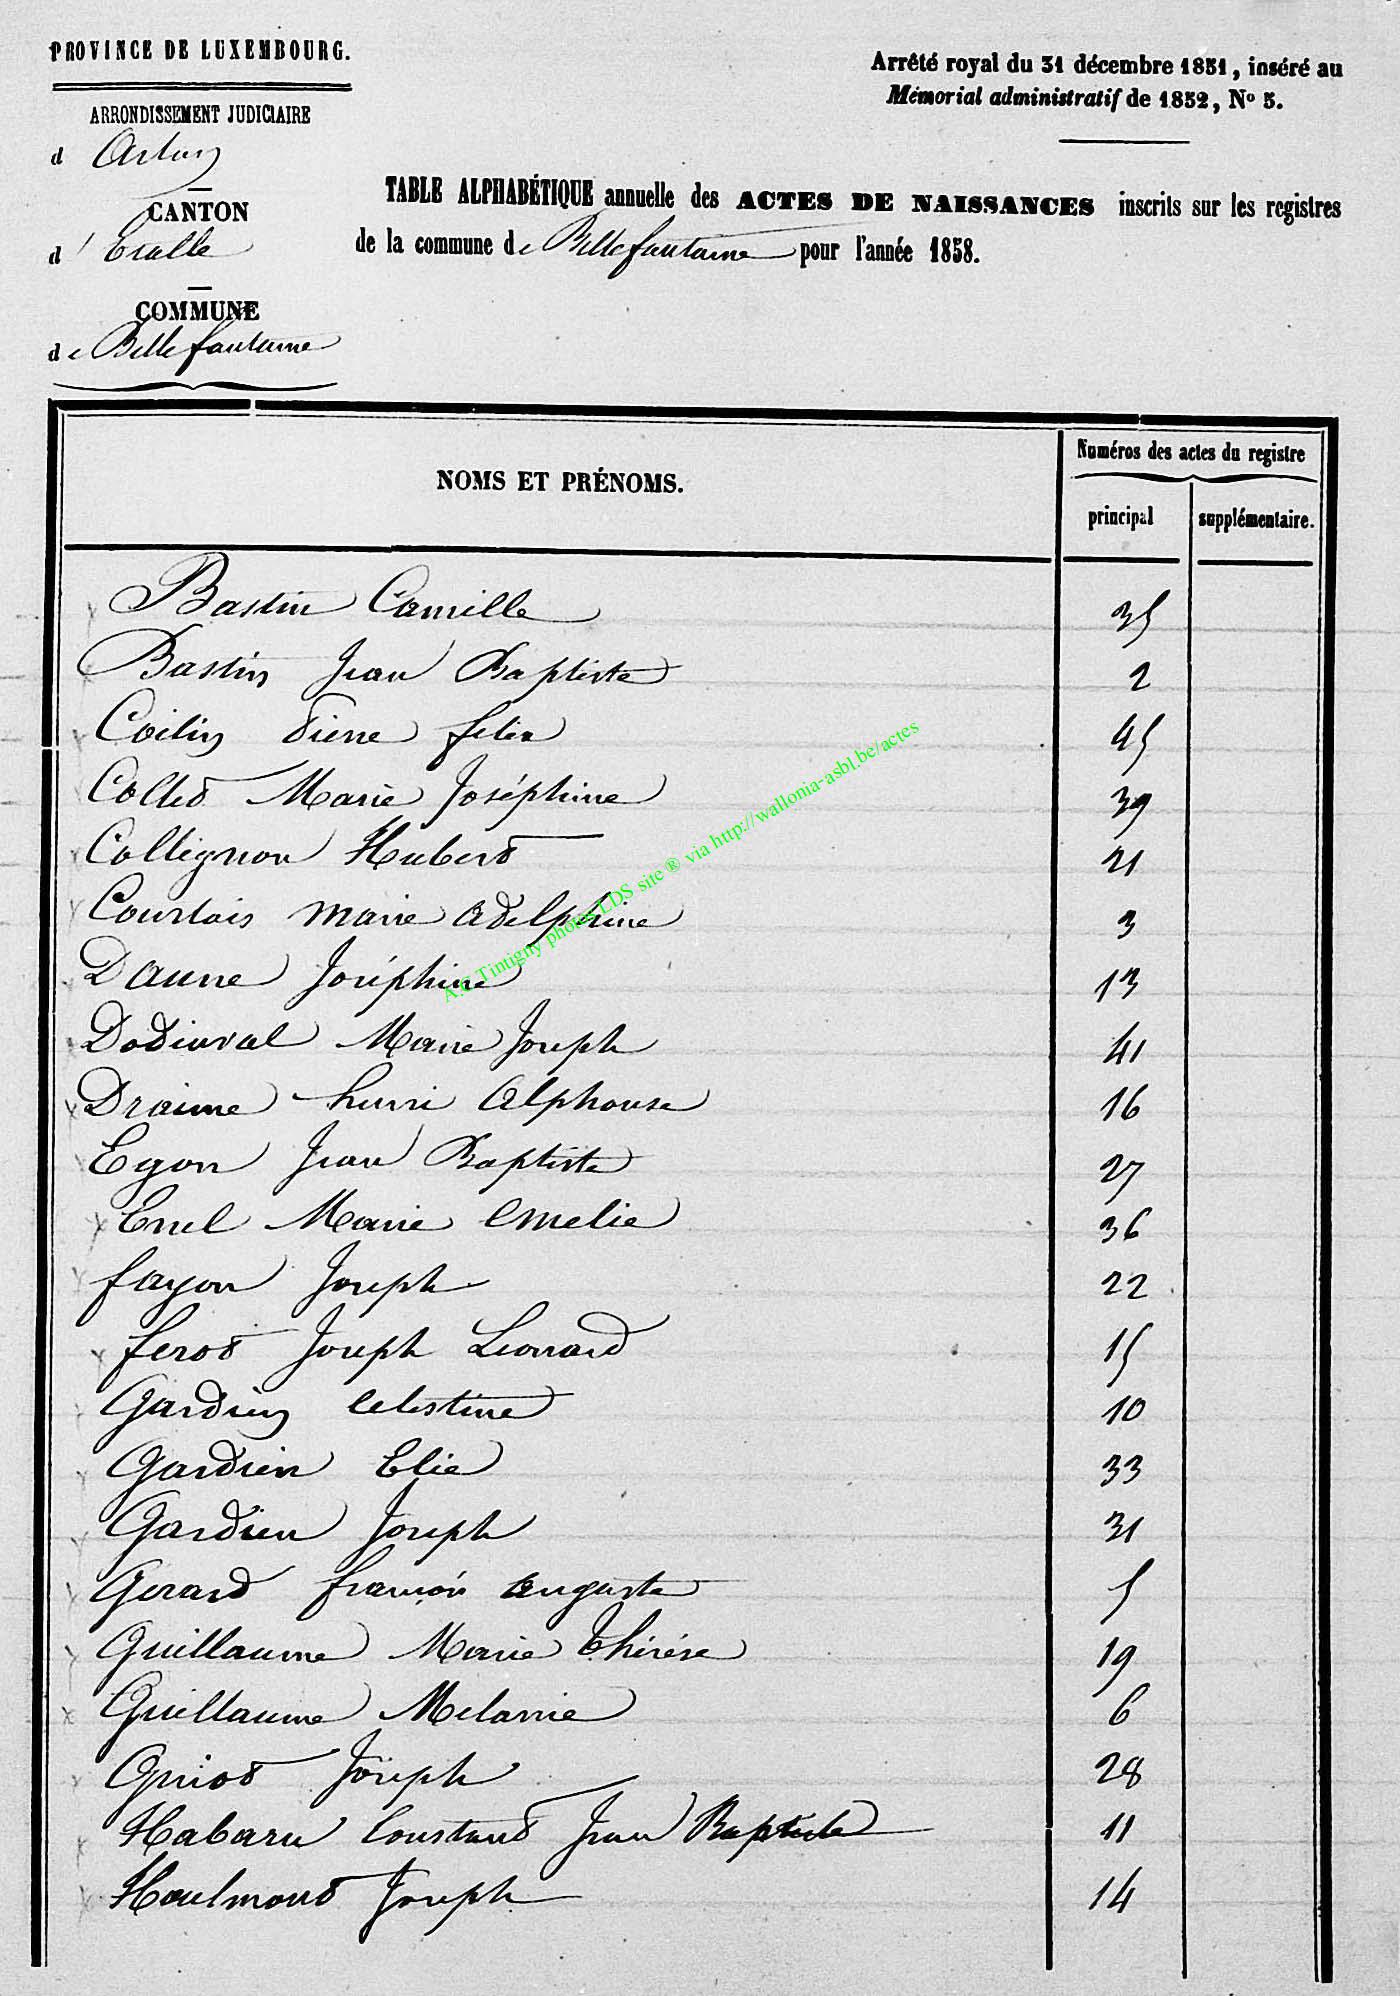 PROVINCE DE LUXEMBOURG.
Arrêté royal du 31 décembre 1851, inséré au
Mémorial administratif de 1852, No 5.
ARRONDISSEMENT JUDICIAIRE
d Arlon
CANTON
d' Etalle
COMMUNE
de Bellefontaine
TABLE ALPHABÉTIQUE annuelle des ACTES DE NAISSANCES inscrits sur les registres
de la commune de Bellefontaine pour l'année 1858.
NOMS ET PRÉNOMS.
Numéros des actes du registre
principal supplémentaire.
Bastin Camille 35
Bastin Jean Baptiste 2
Collin Pierre felix 45
Collet Marie Joséphine 39
Collignon Hubert 21
Courtois marie Adelphine 3
Daune Joséphine 13
Marie Joseph 41
Draime henri Alphonse 16
Egon Jean Baptiste 27
Marie Emelie 36
fayon Joseph 22
ferot Joseph Leonard 15
Gardien Celestine 10
Gardien Elie 33
Gardien Joseph 31
Gerard françois auguste 5
Guillaume Marie Thérése 19
Guillaume Melanie 6
Guiot Joseph 28
Habaru Constant Jean Baptiste 11
Haulmont Joseph 14
A.C Tintigny photos LDS site ® via http://wallonia-asbl.be/actes